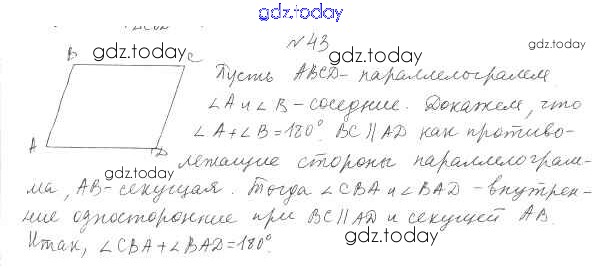 gdz.today
№43
gdz.today
gdz.today
B C
Пусть ABCD - параллелограмм
∠A и ∠B - соседние. Докажем, что
∠A+∠B=180°. BC∥AD как противо-
A D
gdz.today
лежащие стороны параллелограм-
ма, AB - секущая. Тогда ∠CBA и ∠BAD - внутрен-
gdz.today
ние односторонние при BC∥AD и секущей AB.
gdz.today
Итак, ∠CBA+∠BAD=180°.
gdz.today